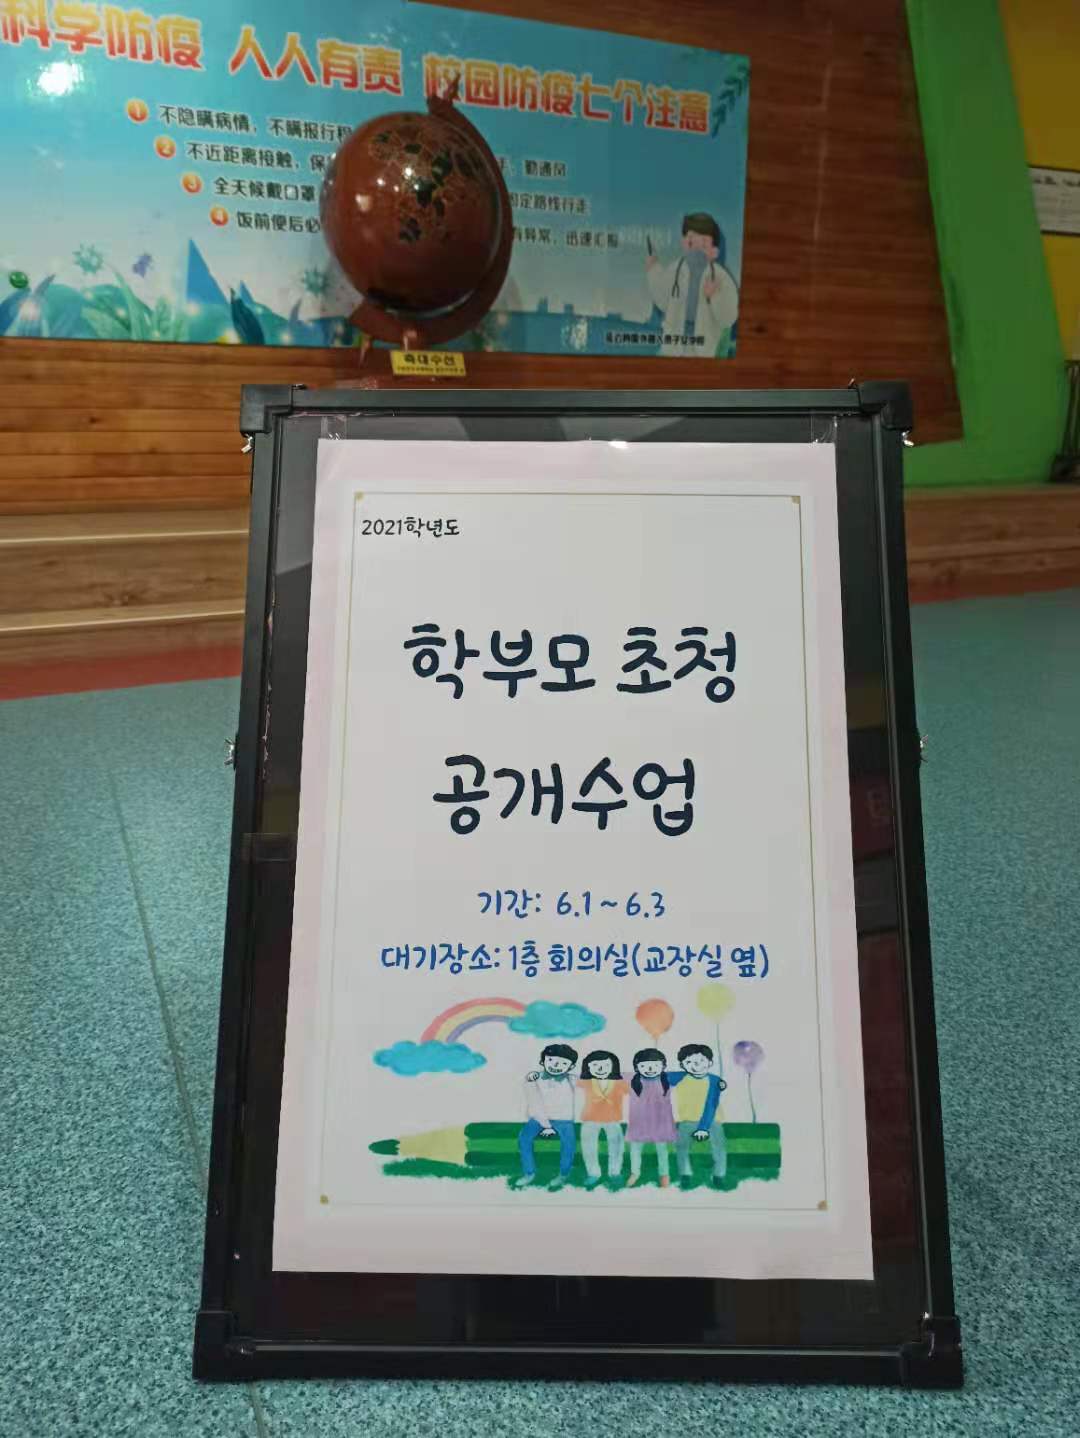 科学防疫 人人有责 校园防疫七个注意
1 不隐瞒病情，不瞒报行程
2 不近距离接触，保
勤通风
3 全天候戴口罩
固定路线行走
4 饭前便后必
有异常，迅速汇报
축대수선
2021학년도
학부모 초청
공개수업
기간: 6.1~6.3
대기장소: 1층 회의실(교장실 옆)